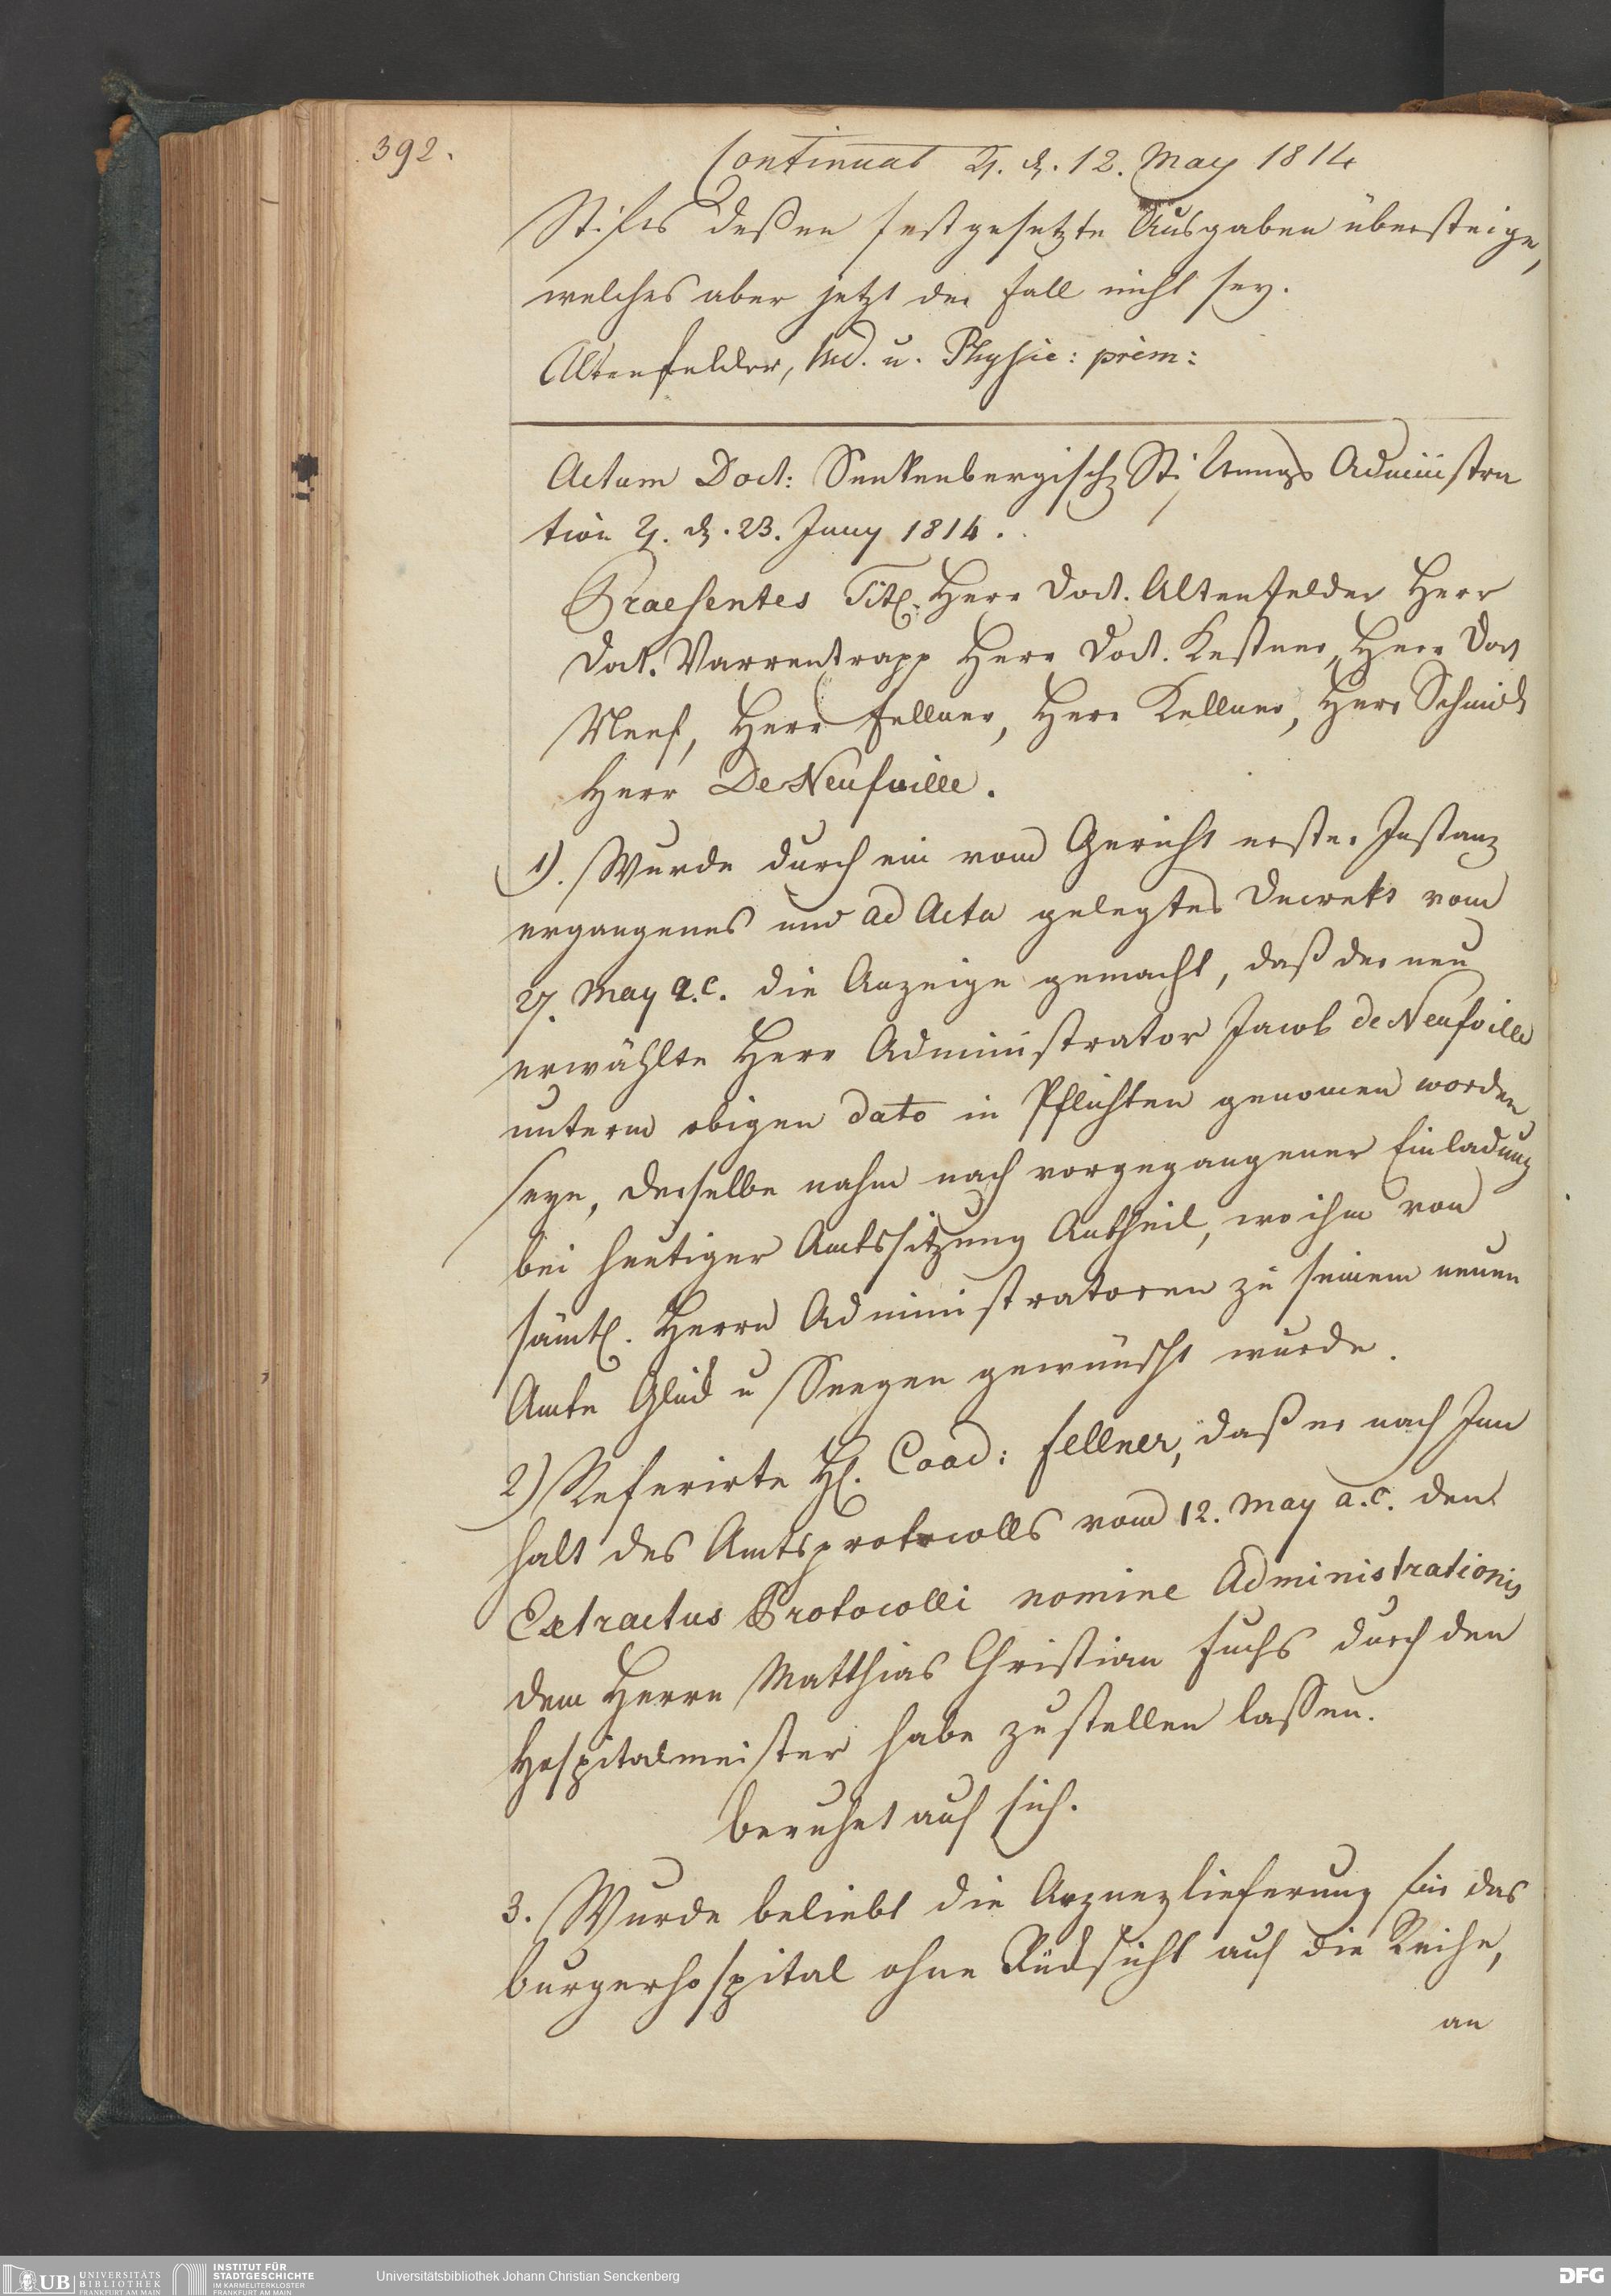 392.
Continuat ♃. d. 12. May 1814
Stifts deßen festgesetzte Ausgaben übersteige,
welches aber jetzt der Fall nicht sey.
Altenfelder, Md. u. Physic: prim:
Actum Doct: Senkenbergisch Stiftungs Administra
tion ♃. d. 23. Juny 1814.
Praesentes Titl. Herr Doct. Altenfelder Herr
Doct. Varrentrapp Herr Doct. Kestner, Herr Doct
Neef, Herr Fellner, Herr Kellner, Herr Schmidt
Herr De Neufville.
1). Wurde durch ein vom Gericht erster Instanz
ergangenes und ad Acta gelegtes Decrets vom
27. May a.c. die Anzeige gemacht, daß der neu
erwählte Herr Administrator Jacob de Neufville
unterm obigen dato in Pflichten genomen worden
seye, derselbe nahm nach vorgegangener Einladung
bei heutiger Amtssitzung Antheil, wo ihm von
sämtl. Herrn Administratoren zu seinem neuen
Amte Glück u Seegen gewünscht wurde.
2) Referirte Hl. Coad: Fellner, daß er nach Inn
halt des Amtsprotocolls vom 12. May a.c. den
Extractus Protocolli nomine Administrationis
dem Herrn Matthias Christian Fuchs durch den
Hospitalmeister habe zustellen lassen.
beruhet auf sich.
3. Wurde beliebt die Arzneylieferung für das
Burgerhospital ohne Rücksicht auf die Reihe,
an
UB UNIVERSITÄTS
BIBLIOTHEK
FRANKFURT AM MAIN
INSTITUT FÜR
STADTGESCHICHTE
IM KARMELITERKLOSTER
FRANKFURT AM MAIN
Universitätsbibliothek Johann Christian Senckenberg
DFG